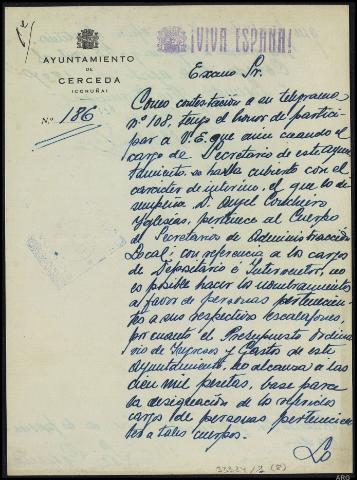 ¡VIVA ESPAÑA!
AYUNTAMIENTO
DE
CERCEDA
(CORUÑA)
N.º 186
Excmo Sr.
Como contestación a su telegrama
nº 108, tengo el honor de partici-
par a V.E. que aun cuando el
cargo de Secretario de este ayun-
tamiento, se halla cubierto con el
carácter de interino, el que lo de-
sempeña D. Angel Corcheiro
Yglesias, pertenece al Cuerpo
de Secretarios de Administración
Local; con referencia a los cargos
de Depositario é Interventor, no
es posible hacer los nombramientos
a favor de personas pertenecien-
tes a sus respectivos escalafones,
por cuanto el Presupuesto ordina-
rio de Ingresos y Gastos de este
Ayuntamiento, no alcanza a las
cien mil pesetas, base para
la designación de los referidos
cargos de personas pertenecien-
tes a tales cuerpos.
Lo
ARG